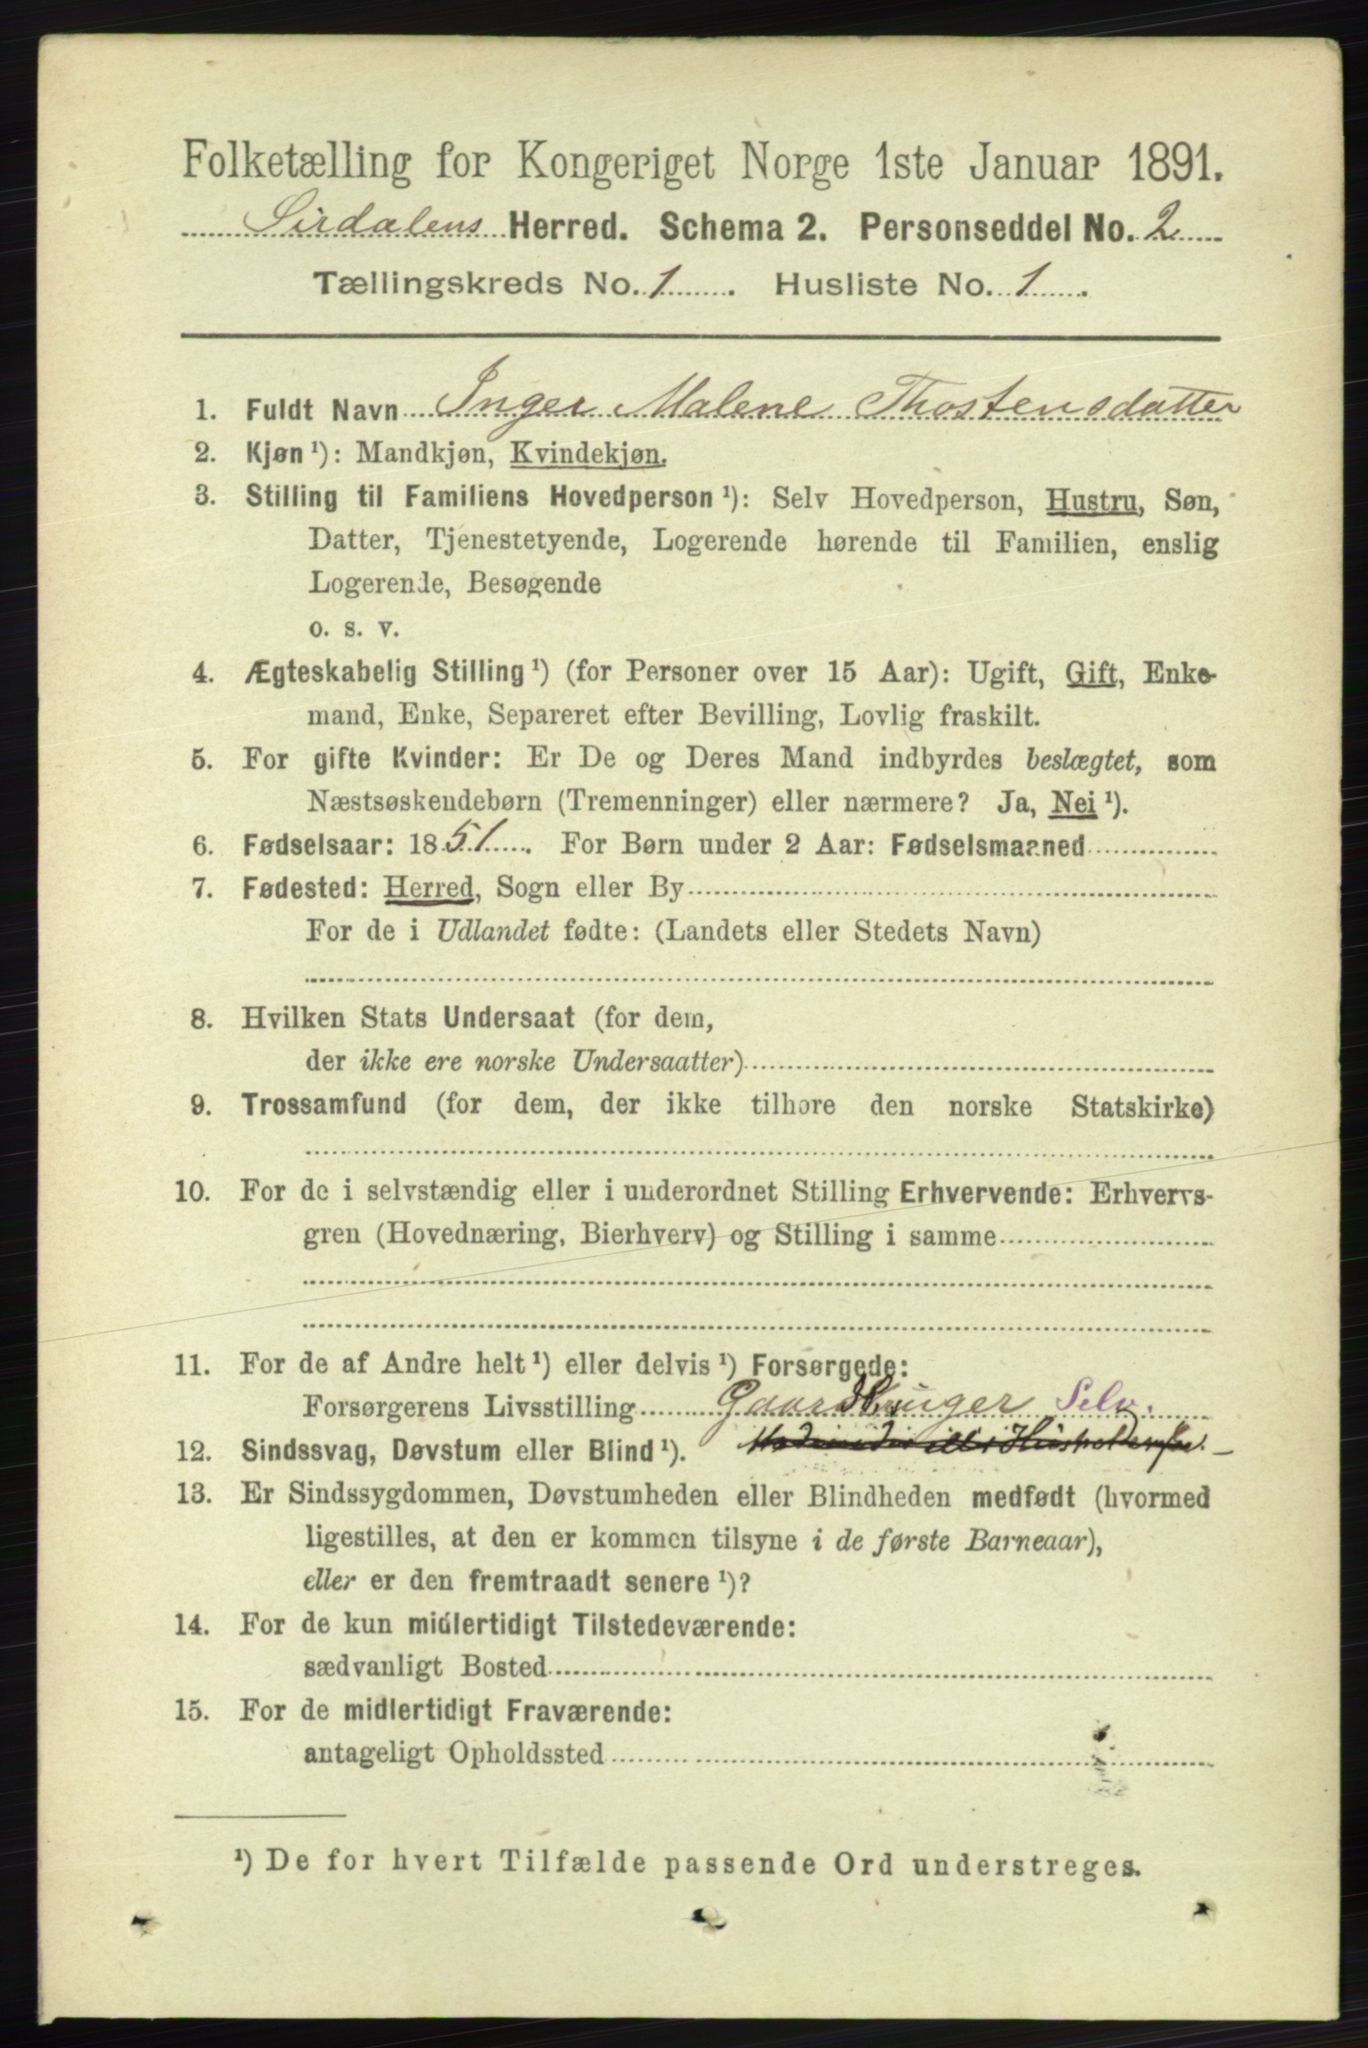 Folketælling for Kongeriget Norge 1ste Januar 1891.
Sirdalens Herred. Schema 2. Personseddel No. 2
Tællingskreds No. 1. Husliste No. 1.
1. Fuldt Navn Inger Malene Thostensdatter
2. Kjøn¹): Mandkjøn, Kvindekjøn.
3. Stilling til Familiens Hovedperson¹): Selv Hovedperson, Hustru, Søn,
Datter, Tjenestetyende, Logerende hørende til Familien, enslig
Logerende, Besøgende
o. s. v.
4. Ægteskabelig Stilling¹) (for Personer over 15 Aar): Ugift, Gift, Enke-
mand, Enke, Separeret efter Bevilling, Lovlig fraskilt.
5. For gifte Kvinder: Er De og Deres Mand indbyrdes beslægtet, som
Næstsøskendebørn (Tremenninger) eller nærmere? Ja, Nei¹).
6. Fødselsaar: 1851. For Børn under 2 Aar: Fødselsmaaned
7. Fødested: Herred, Sogn eller By
For de i Udlandet fødte: (Landets eller Stedets Navn)
8. Hvilken Stats Undersaat (for dem,
der ikke ere norske Undersaatter)
9. Trossamfund (for dem, der ikke tilhøre den norske Statskirke)
10. For de i selvstændig eller i underordnet Stilling Erhvervende: Erhvervs-
gren (Hovednæring, Bierhverv) og Stilling i samme
11. For de af Andre helt¹) eller delvis¹) Forsørgede:
Forsørgerens Livsstilling Gaardbruger Selv.
12. Sindssvag, Døvstum eller Blind¹).
13. Er Sindssygdommen, Døvstumheden eller Blindheden medfødt (hvormed
ligestilles, at den er kommen tilsyne i de første Barneaar),
eller er den fremtraadt senere¹)?
14. For de kun midlertidigt Tilstedeværende:
sædvanligt Bosted
15. For de midlertidigt Fraværende:
antageligt Opholdssted
¹) De for hvert Tilfælde passende Ord understreges.